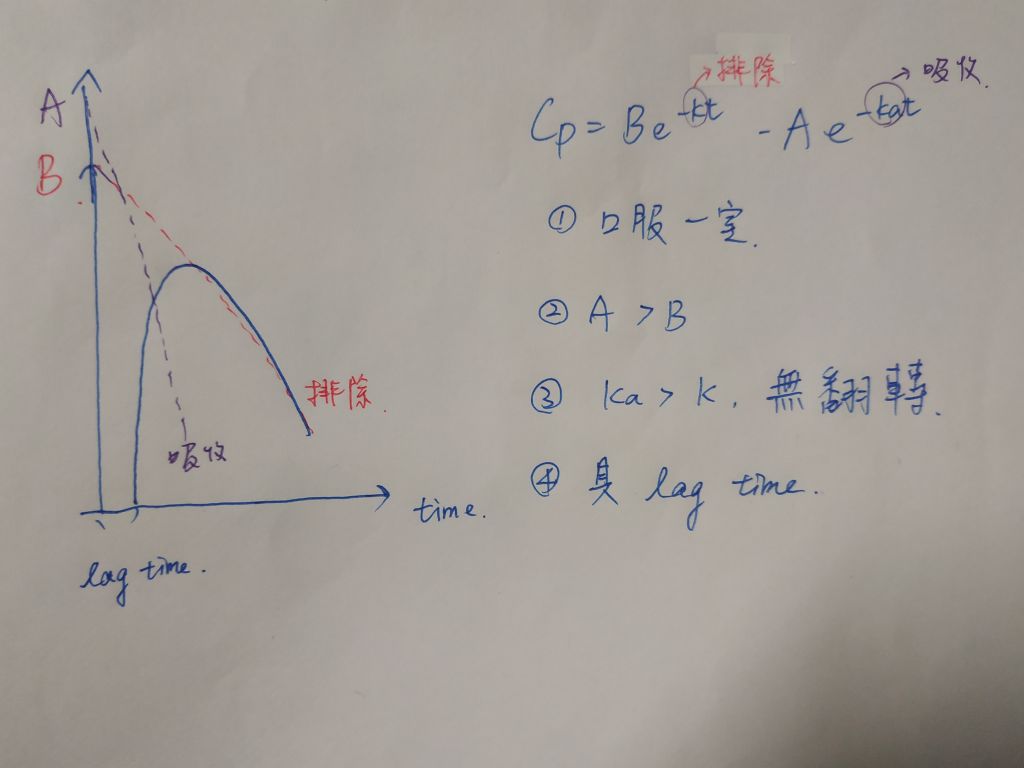 A
B.
排除.
吸收
time.
lag time.
→排除
→ 吸收.
Cp = Be^-kt - Ae^-kat
① 口服一室.
② A > B
③ ka > k. 無翻轉.
④ 具 lag time.